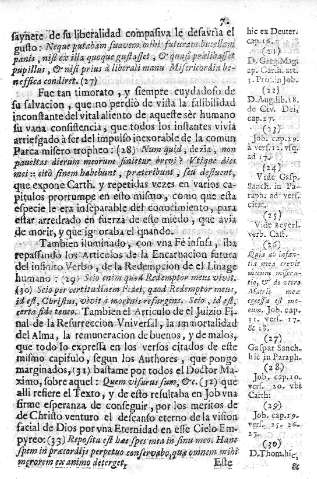 7.
saynete de su liberalidad compasiva le desavria el
gusto: Neque putabam suavem mihi futuram buccellam
panis, nisi ex illa quoque gustasset, & quasi prælibasset
pupillus, & nisi prius à liberali manu Misericordia be-
nefica condiret. (27)
Fue tan timorato, y siempre cuydadoso de
su salvacion, que no perdiò de vista la falibilidad
inconstante del vital aliento de aqueste sèr humano
su vana consistencia, que todos los instantes vivia
arriesgado à ser del impulso inexorable de la comun
Parca misero tropheo: (28) Nunquid, dezia, non
paucitas dierum meorum finietur brevi? Utique dies
mei: citò finem habebunt, præteribunt,
que expone Carth. y repetidas vezes en varios ca-
pitulos prorrumpe en esto mismo, como que esta
especie le era inseparable del conocimiento, para
estar arredrado en fuerza de este miedo, que avia
de morir, y que ignoraba el quando.
Tambien iluminado, con vna Fè infusa, iba
repassando los Articulos de la Encarnacion futura
del infinito Verbo, de la Redempcion de el Linage
humano: (29) Scio enim quod Redemptor meus vivit.
(30) Scio per certitudinem Fidei, quod Redemptor meus,
id est, Christus, vivit à mortuis resurgens. Scio, id est,
certa fide teneo. Tambien el Articulo de el Juizio Fi-
nal de la Resurreccion Vniversal, la inmortalidad
del Alma, la remuneracion de buenos, y de malos,
que todo lo expressa en los versos citados de este
mismo capitulo, segun los Authores, que pongo
marginados, (31) bastame por todos el Doctor Ma-
ximo, sobre aquel: Quem visurus sum, &c. (32) que
alli refiere el Texto, y de esto resultaba en Job vna
firme esperanza de conseguir, por los meritos de
de Christo venturo el descanso eterno de la vission
facial de Dios por vna Eternidad en esse Cielo Em-
pyreo: (33) Reposita est hæc spes mea in sinu meo. Hanc
spem in præcordijs perpetuo conservabo, quæ omnem mihi
mœrorem ex animo deterget. Este
hic ex Deuter.
cap. 16.
(21)
D. Greg. Mag.
ap. Carth. art.
1. Proëm. Job.
(22)
D. Aug. lib. 18.
de Civ. Dei,
cap. 47.
(23)
Job. cap. 19.
à vers. 12. vsq.
ad 17.
(24)
Vide Gasp.
Sanch. in Pa-
raph. ad vers.
cit.
(25)
Vide Beyerl.
verb.
(26)
1.
vers. 17.
& 18.
(27)
Gaspar Sanch.
hic in Paraph.
(28)
Job. cap. 10.
vers. 20. vbi
Carth:
(29)
Job. cap. 19.
vers. 25. 26.
27.
(30)
D. Thom. hic,
&